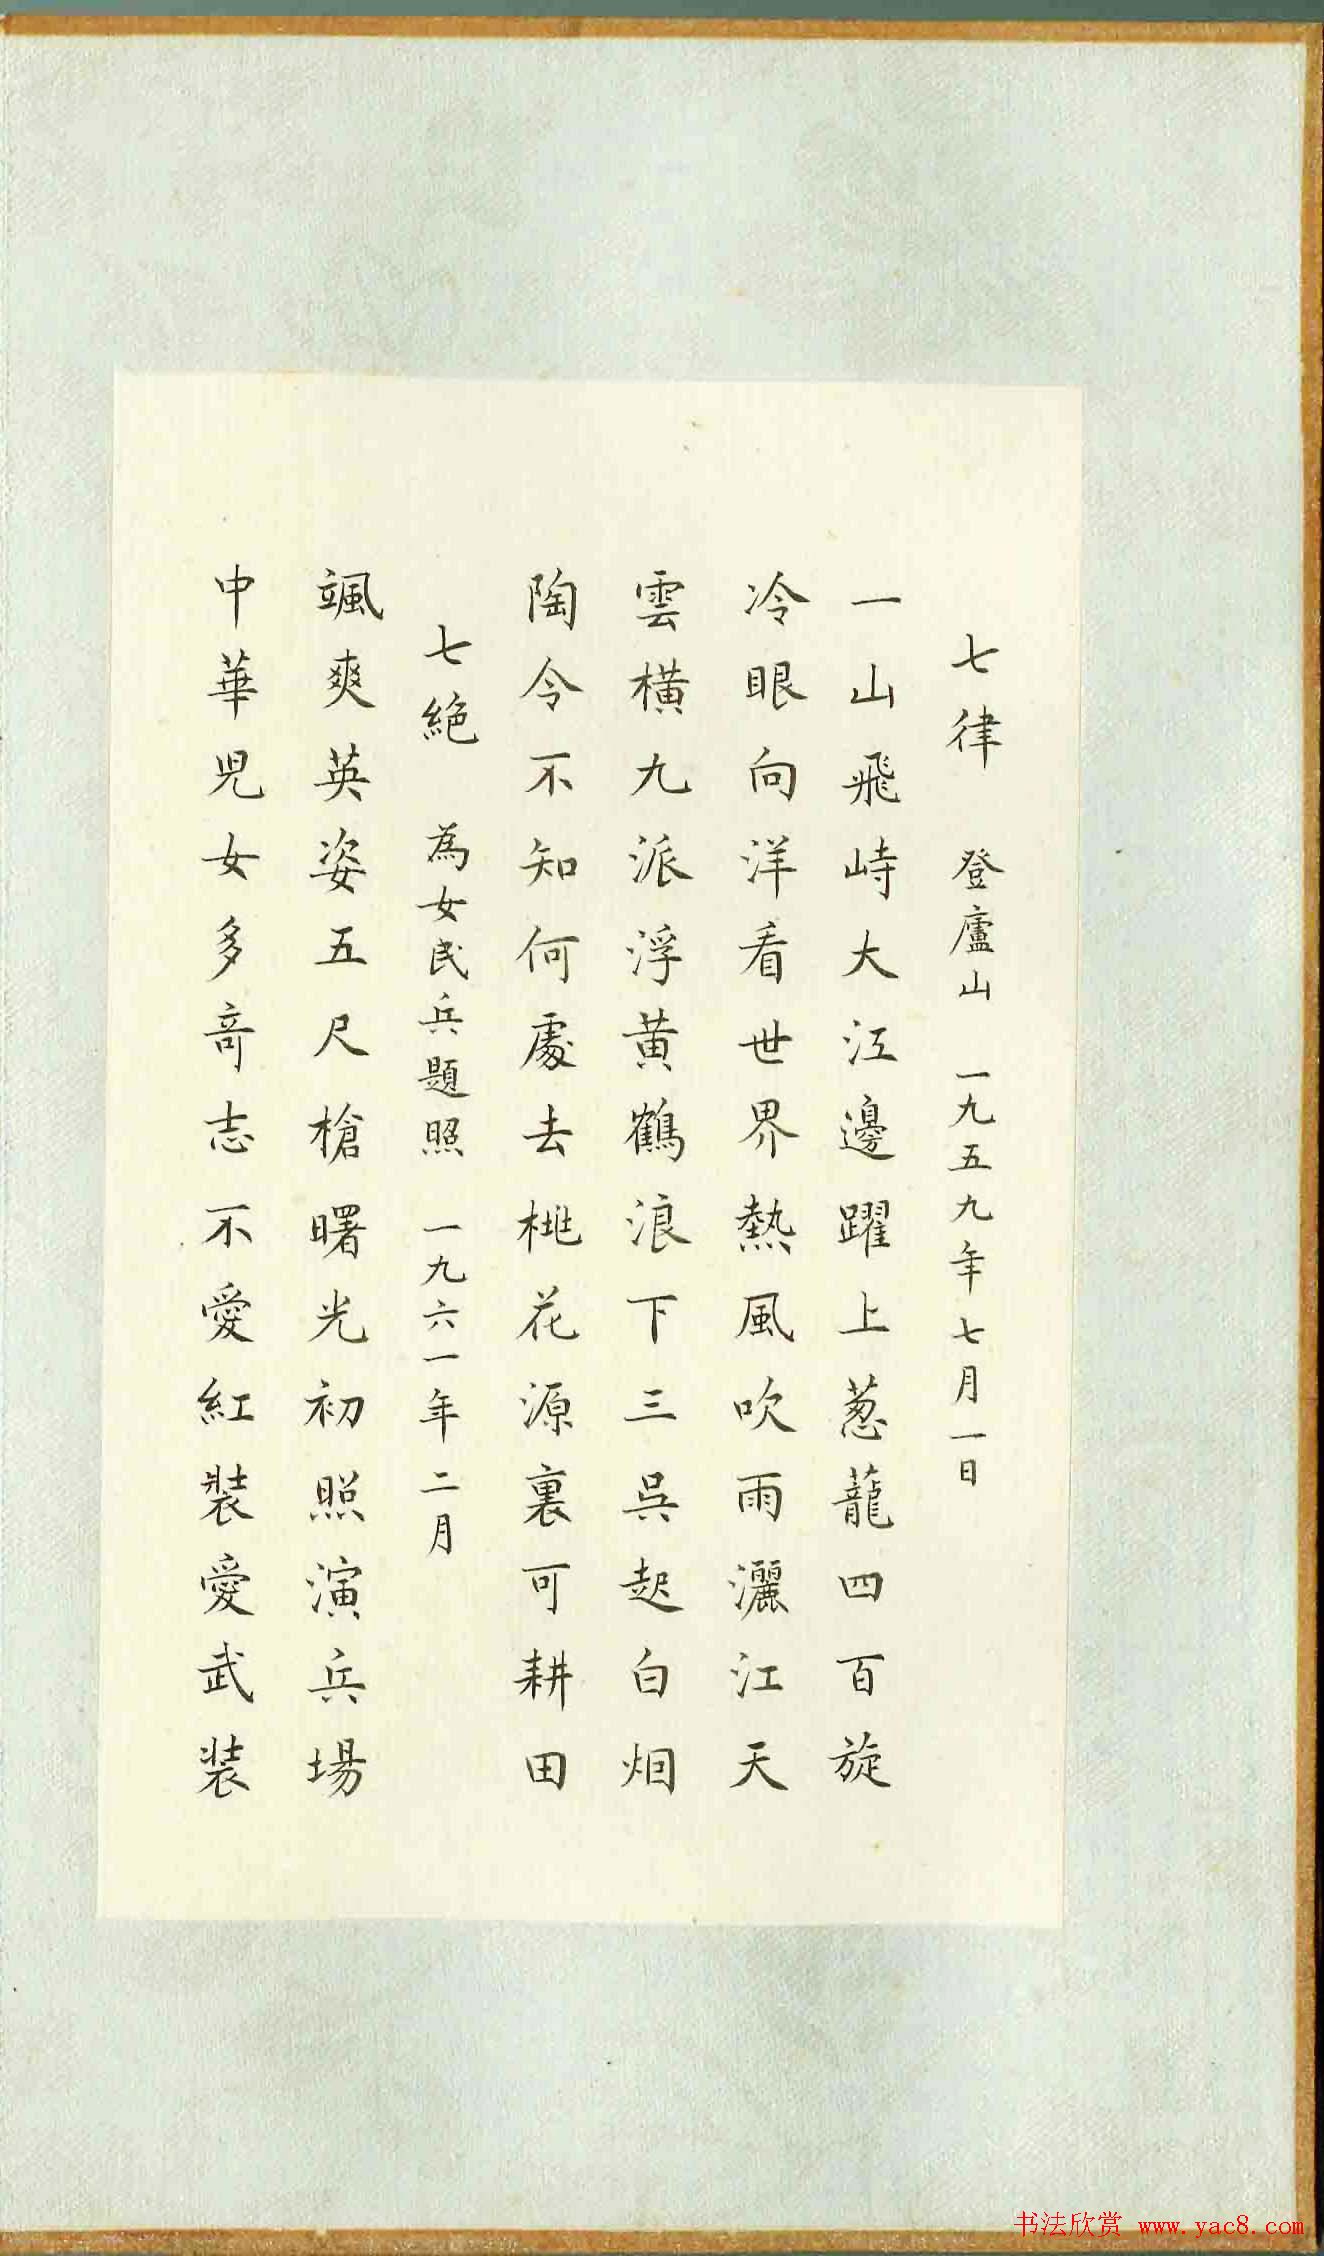 七律 登廬山 一九五九年七月一日
一山飛峙大江邊躍上葱蘢四百旋
冷眼向洋看世界熱風吹雨灑江天
雲橫九派浮黃鶴浪下三吳起白烟
陶令不知何處去桃花源裏可耕田
七絕 為女民兵題照 一九六一年二月
颯爽英姿五尺槍曙光初照演兵場
中華兒女多奇志不愛紅裝愛武裝
书法欣赏 www.yac8.com